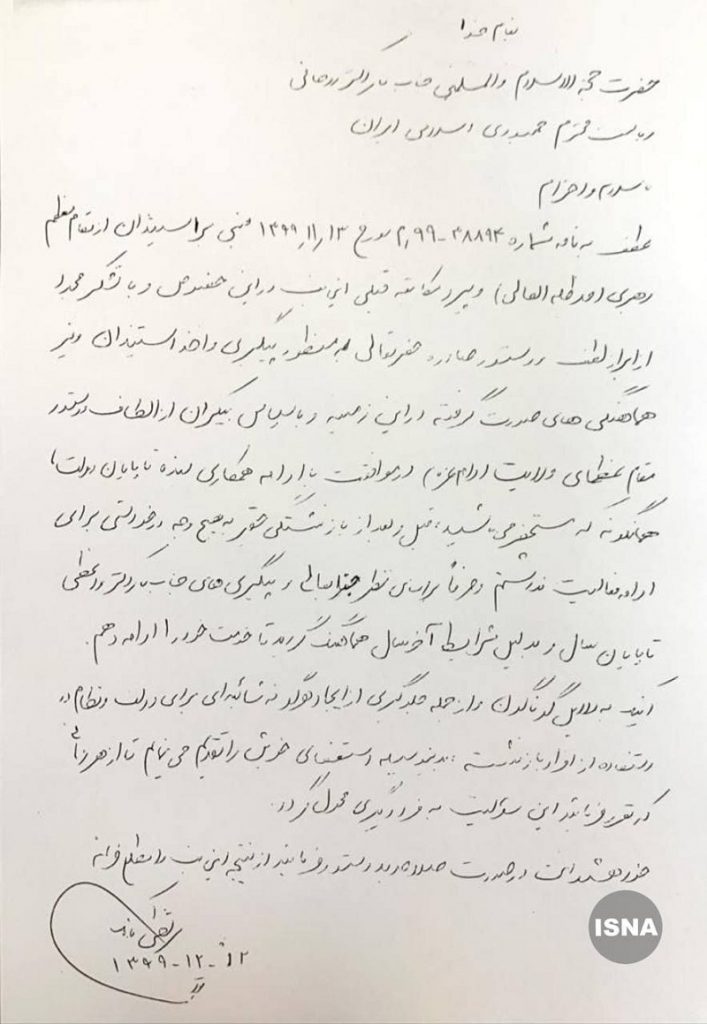 بنام خدا
حضرت حجة الاسلام والمسلمین جناب آقای دکتر روحانی
ریاست محترم جمهوری اسلامی ایران
با سلام و احترام
عطف به نامه شماره ۴۸۸۹۴-۲٫۹۹ مورخ ۱۳۹۹٫۱۱٫۱۳ مبنی بر استیذان از مقام معظم
رهبری (مد ظله العالی) و پیرو مکاتبه قبلی این‌جانب در این خصوص و با تشکر مجدد
از ابراز لطف و دستور صادره حضرتعالی به منظور پیگیری و اخذ استیذان و نیز
هماهنگی های صورت گرفته در این زمینه و با سپاس بیکران از الطاف و دستور
مقام عظمای ولایت (دام عزه) در موافقت با ادامه همکاری بنده تا پایان دولت،
همانگونه که مستحضر می باشید، قبل و بعد از بازنشستگی حقیر به هیچ وجه درخواستی برای
ادامه فعالیت نداشتم و صرفاً بر اساس نظر جنابعالی و پیگیری های جناب آقای دکتر واعظی
تا پایان سال و بدلیل شرایط آخر سال هماهنگ گردید تا خدمت خود را ادامه دهم.
اینک به دلایل گوناگون و از جمله جلوگیری از ایجاد هرگونه شائبه‌ای برای دولت و نظام در
استفاده از افراد بازنشسته، بدینوسیله استعفای خویش را تقدیم می نمایم تا از هر زمانی
که تقریر فرمائید این مسئولیت به فرد دیگری محول گردد.
خواهشمند است در صورت صلاحدید دستور فرمائید از نتیجه این‌جانب را مطلع فرمایند
۱۳۹۹-۱۲-۱۲
ISNA